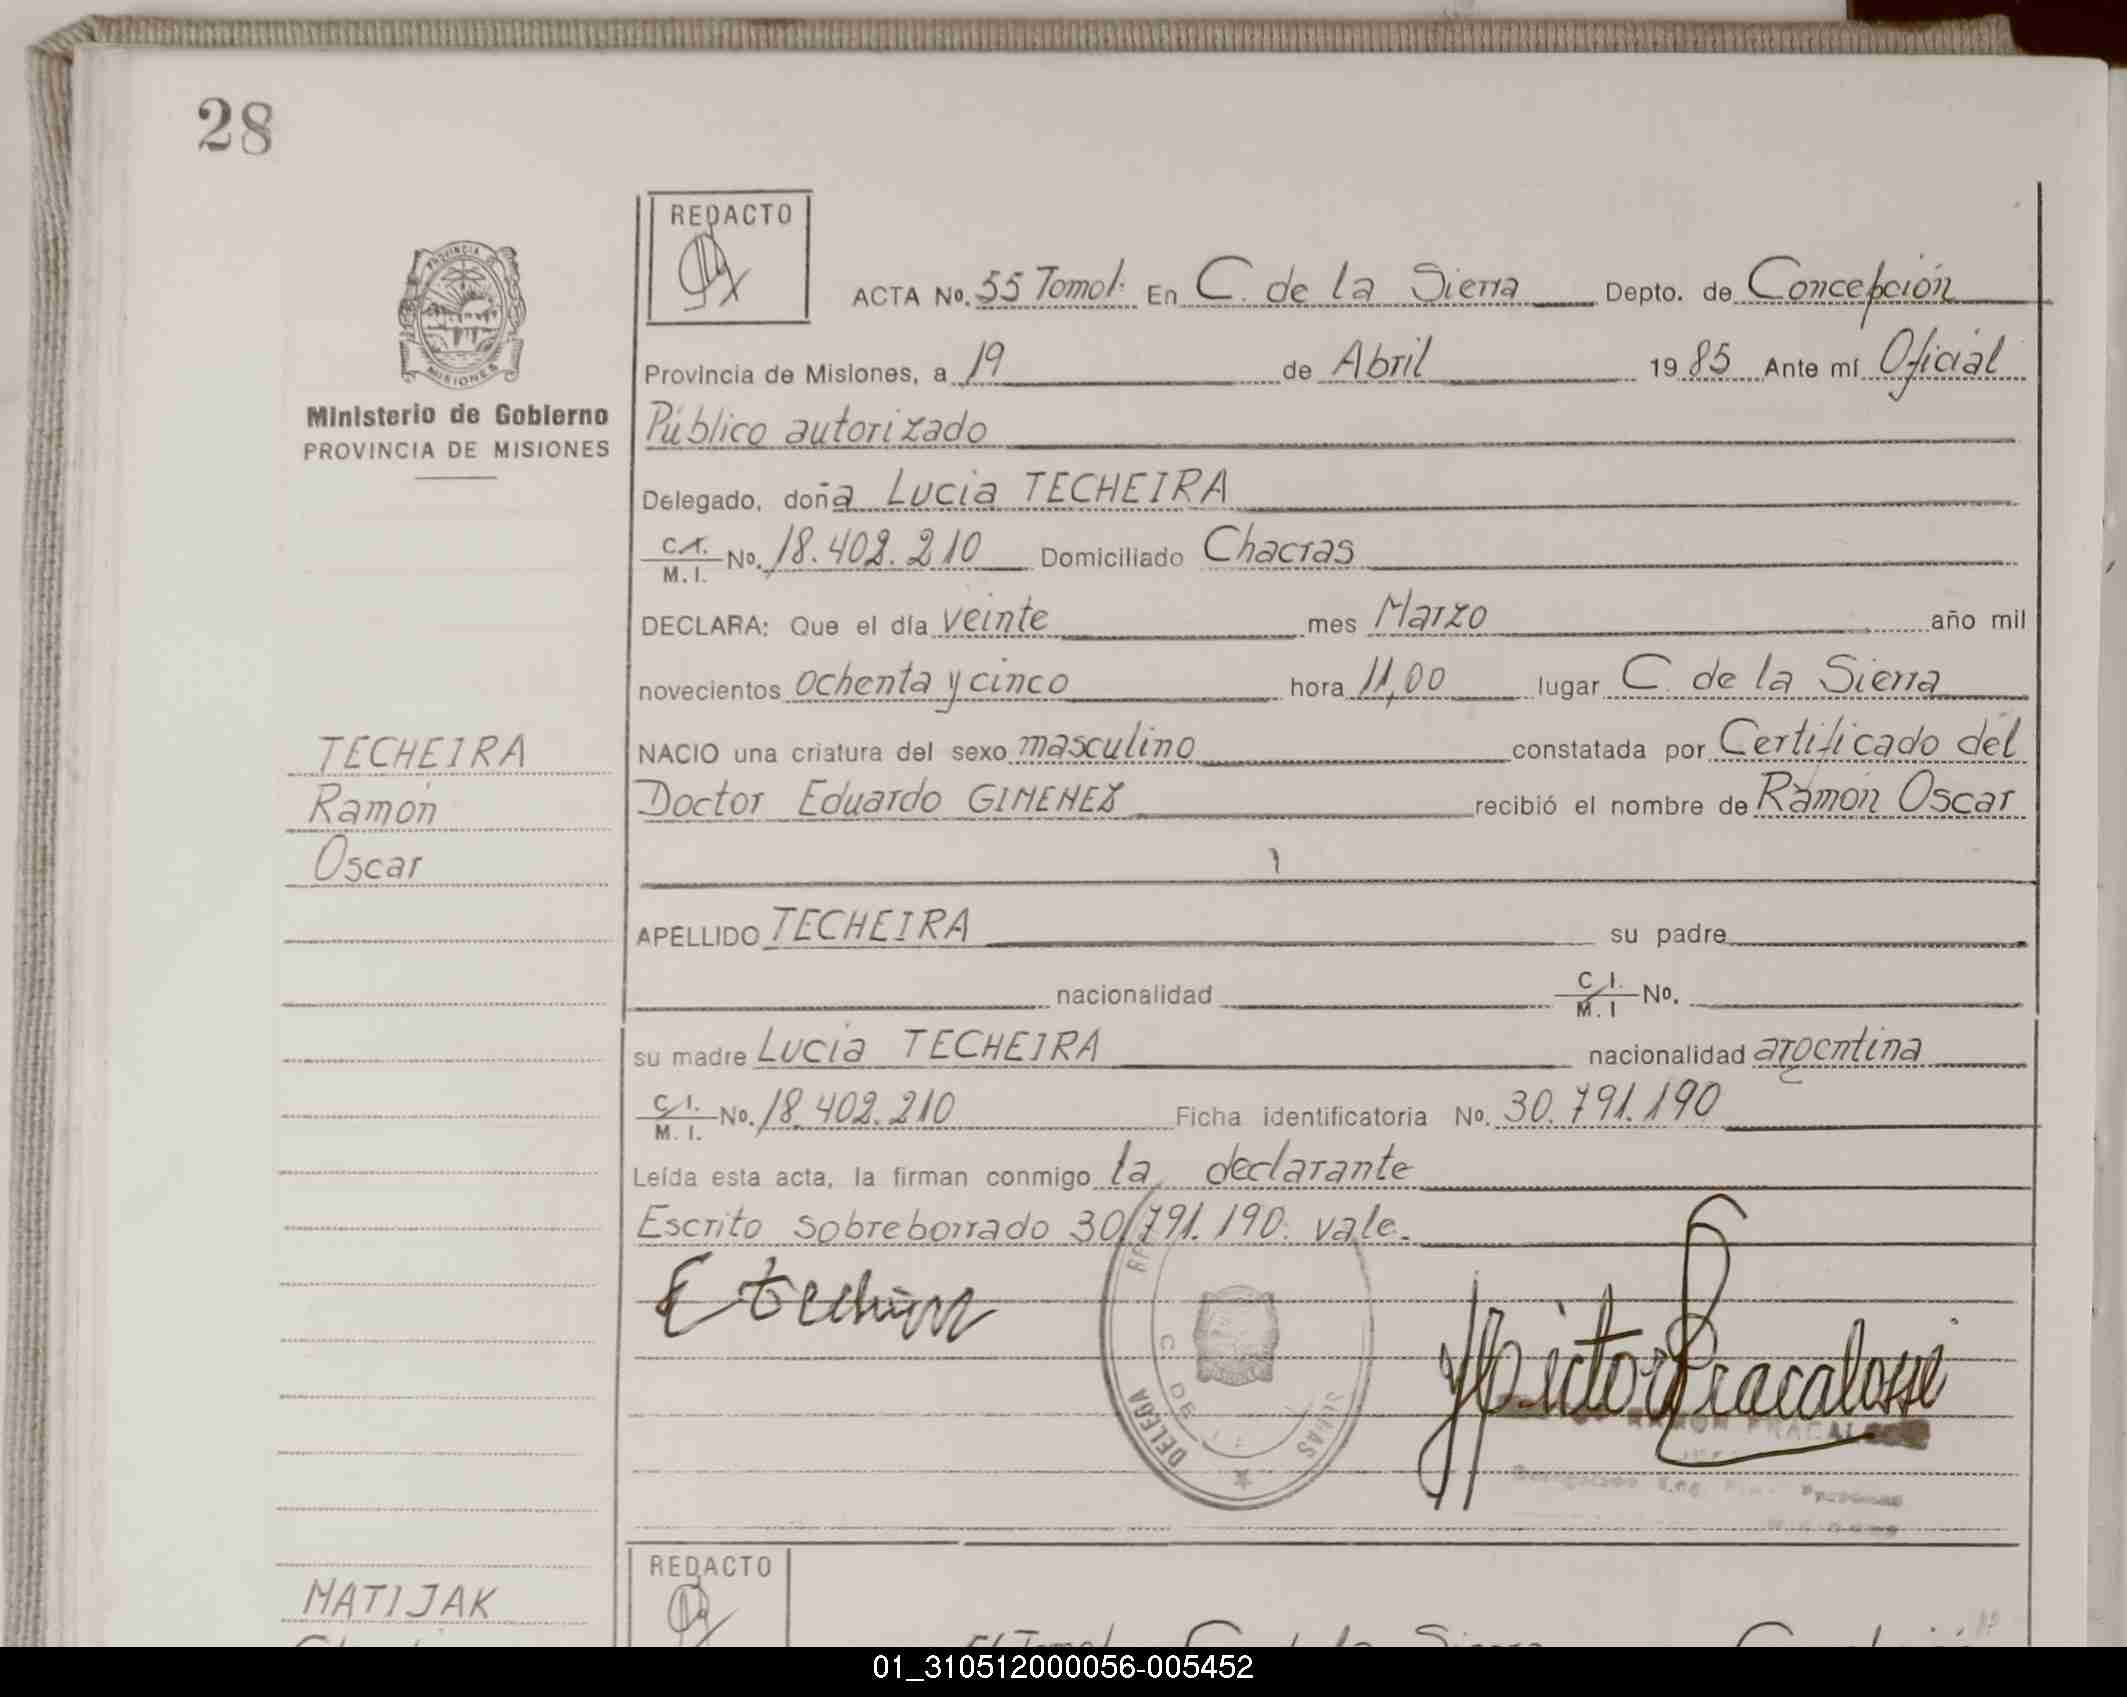 28
REDACTO
PROVINCIA DE
MISIONES
Ministerio de Gobierno
PROVINCIA DE MISIONES
ACTA No. 55 Tomo I. En C. de la Sierra Depto. de Concepción
Provincia de Misiones, a 19 de Abril 1985 Ante mí Oficial
Público autorizado
Delegado, doña Lucia TECHEIRA
C.I. M.I. No. 18.402.210 Domiciliado Chacras
DECLARA: Que el día veinte mes Marzo año mil
novecientos ochenta y cinco hora 11,00 lugar C. de la Sierra
TECHEIRA
Ramón
Oscar
NACIO una criatura del sexo masculino constatada por Certificado del
Doctor Eduardo GIMENEZ recibió el nombre de Ramón Oscar
APELLIDO TECHEIRA su padre
nacionalidad C.I. M.I No.
su madre Lucia TECHEIRA nacionalidad argentina
C.I. M.I. No. 18.402.210 Ficha identificatoria No. 30.791.190
Leída esta acta, la firman conmigo la declarante
Escrito sobreborrado 30.791.190. vale.
DELEGA
C. DE
RAMON FRACALOSSI
MATIJAK
REDACTO
01_310512000056-005452